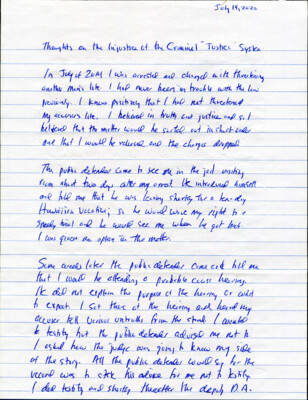 July 14, 2020
Thoughts on the Injustice of the Criminal "Justice" System
In July of 2011 I was arrested and charged with threatening
another man's life. I had never been in trouble with the law
previously. I knew positively that I had not threatened
my accuser's life. I believed in truth and justice and so I
believed that the matter would be sorted out in short order
and that I would be released and the charges dropped.
The public defender came to see me in the jail visiting
room about two days after my arrest. He introduced himself
and told me that he was leaving shortly for a ten-day
Hawaiian vacation; so he would waive my right to a
speedy trial and he would see me when he got back.
I was given no option in the matter.
Some weeks later the public defender came and told me
that I would be attending a probable cause hearing.
He did not explain the purpose of the hearing or what
to expect. I sat there at the hearing and heard my
accuser tell various untruths from the stand. I wanted
to testify but the public defender advised me not to.
I asked how the judge was going to know my side
of the story. All the public defender would say for the
record was to state his advice for me not to testify.
I did testify and shortly thereafter the deputy D.A.